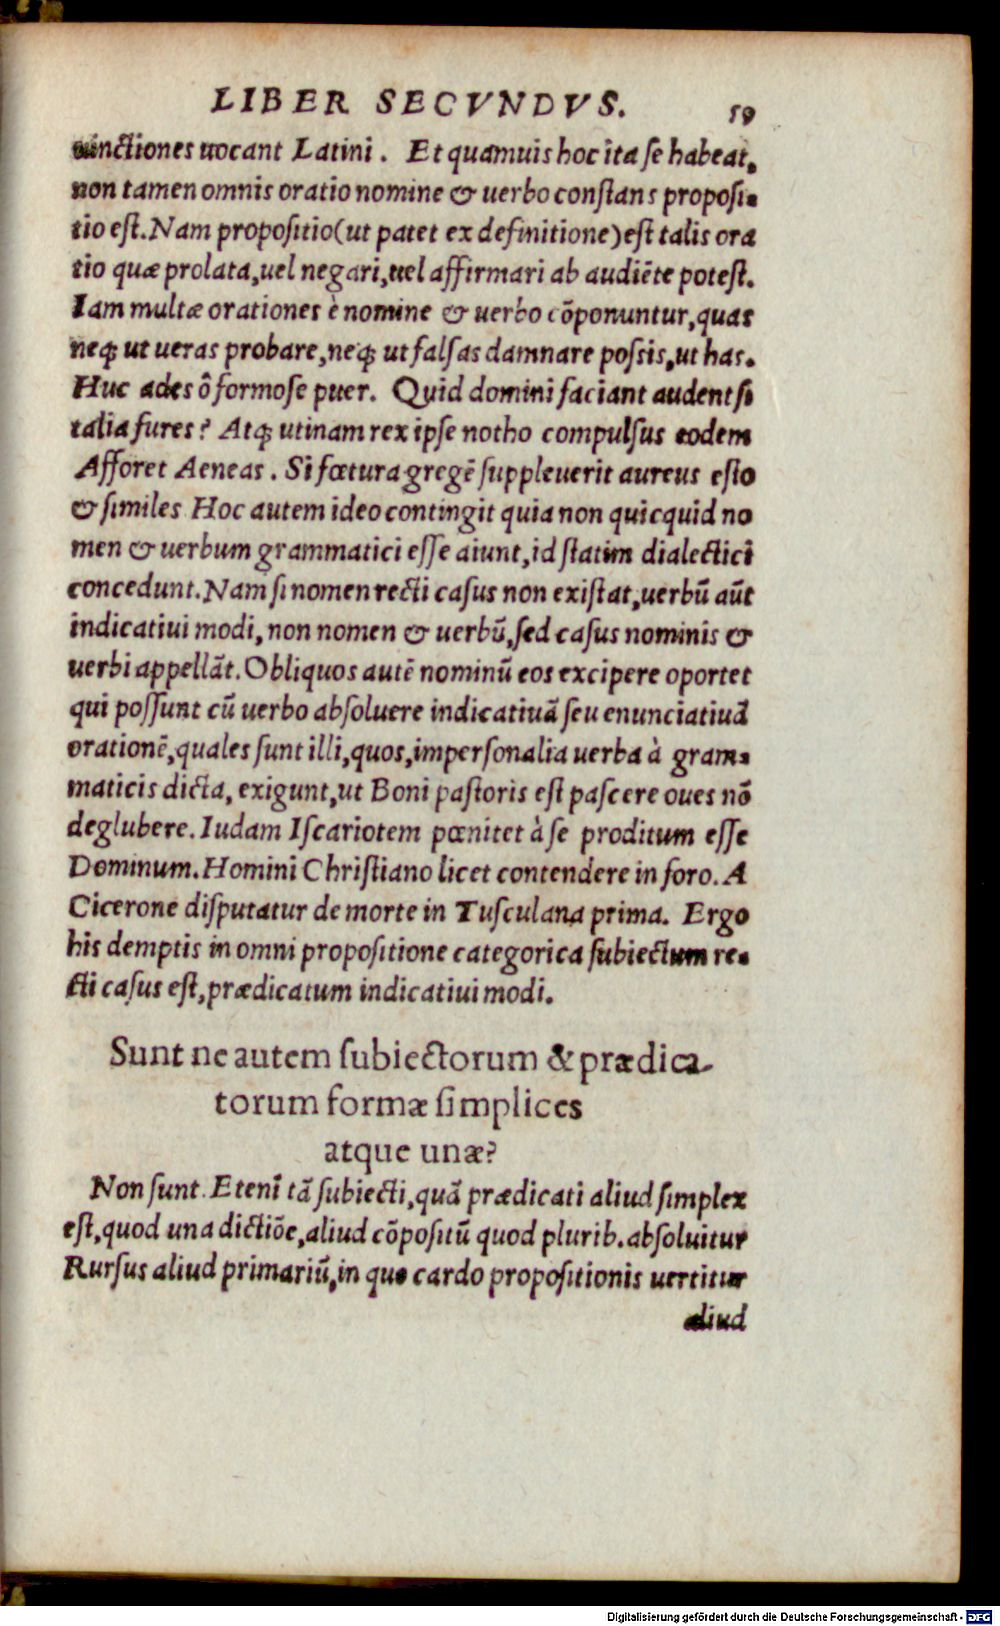 LIBER SECVNDVS. 59
uinctiones uocant Latini. Et quamuis hoc ita se habeat,
non tamen omnis oratio nomine & uerbo constans proposi-
tio est. Nam propositio (ut patet ex definitione) est talis ora
tio quæ prolata, uel negari, uel affirmari ab audiẽte potest.
Iam multæ orationes è nomine & uerbo cõponuntur, quas
neq; ut ueras probare, neq; ut falsas damnare possis, ut has.
Huc ades ô formose puer. Quid domini faciant audent si
talia fures? Atq; utinam rex ipse notho compulsus eodem
Afforet Aeneas. Si fœtura gregẽ suppleuerit aureus esto
& similes Hoc autem ideo contingit quia non quicquid no
men & uerbum grammatici esse aiunt, id statim dialectici
concedunt. Nam si nomen recti casus non existat, uerbũ aũt
indicatiui modi, non nomen & uerbũ, sed casus nominis &
uerbi appellãt. Obliquos autẽ nominũ eos excipere oportet
qui possunt cũ uerbo absoluere indicatiuã seu enunciatiuã
orationẽ, quales sunt illi, quos, impersonalia uerba à gram-
maticis dicta, exigunt, ut Boni pastoris est pascere oues nõ
deglubere. Iudam Iscariotem pœnitet à se proditum esse
Dominum. Homini Christiano licet contendere in foro. A
Cicerone disputatur de morte in Tusculana prima. Ergo
his demptis in omni propositione categorica subiectum re-
cti casus est, prædicatum indicatiui modi.
Sunt ne autem subiectorum & prædica-
torum formæ simplices
atque unæ?
Non sunt. Etenĩ tã subiecti, quã prædicati aliud simplex
est, quod una dictiõe, aliud cõpositũ quod plurib. absoluitur
Rursus aliud primariũ, in quo cardo propositionis uertitur
aliud
Digitalisierung gefördert durch die Deutsche Forschungsgemeinschaft - DFG